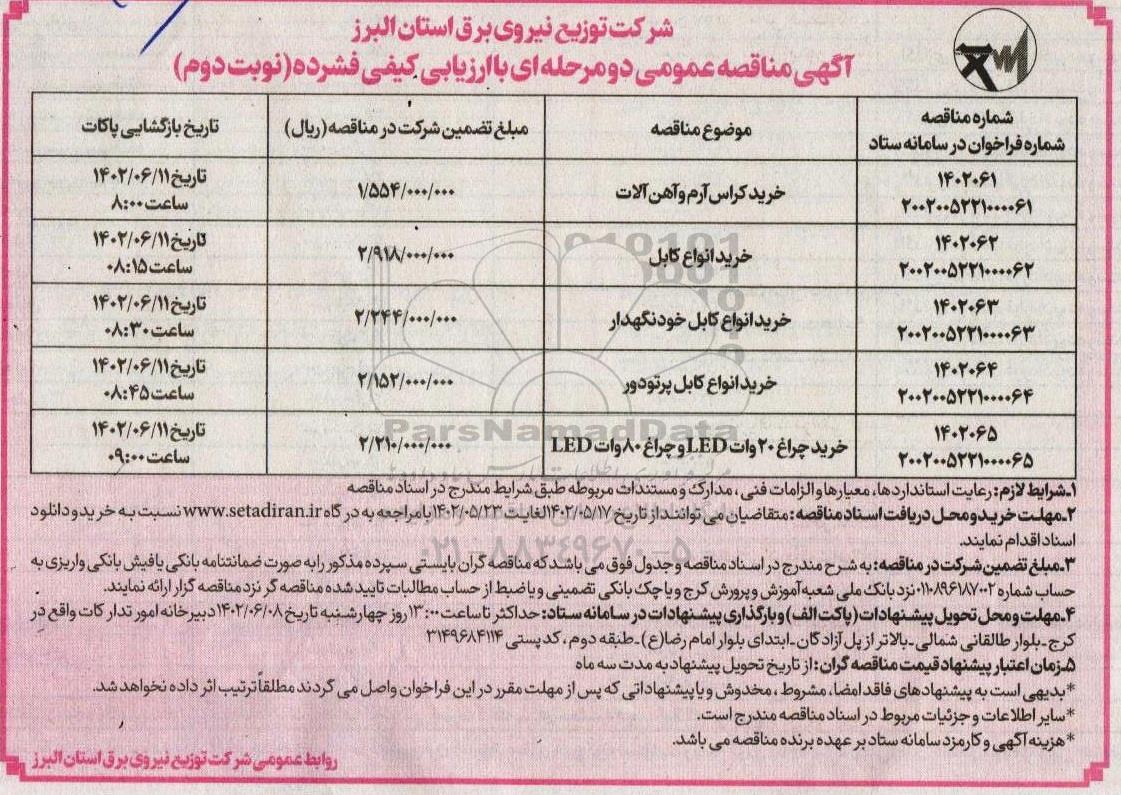 شرکت توزیع نیروی برق استان البرز
آگهی مناقصه عمومی دو مرحله ای با ارزیابی کیفی فشرده (نوبت دوم)
شماره مناقصه
شماره فراخوان در سامانه ستاد
موضوع مناقصه
مبلغ تضمین شرکت در مناقصه (ریال)
تاریخ بازگشایی پاکات
۱۴۰۲۰۶۱
۲۰۰۲۰۰۵۲۲۱۰۰۰۰۶۱
خرید کراس آرم و آهن آلات
۱/۵۵۴/۰۰۰/۰۰۰
تاریخ ۱۴۰۲/۰۶/۱۱
ساعت ۸:۰۰
۱۴۰۲۰۶۲
۲۰۰۲۰۰۵۲۲۱۰۰۰۰۶۲
خرید انواع کابل
۲/۹۱۸/۰۰۰/۰۰۰
تاریخ ۱۴۰۲/۰۶/۱۱
ساعت ۰۸:۱۵
۱۴۰۲۰۶۳
۲۰۰۲۰۰۵۲۲۱۰۰۰۰۶۳
خرید انواع کابل خودنگهدار
۲/۲۴۴/۰۰۰/۰۰۰
تاریخ ۱۴۰۲/۰۶/۱۱
ساعت ۰۸:۳۰
۱۴۰۲۰۶۴
۲۰۰۲۰۰۵۲۲۱۰۰۰۰۶۴
خرید انواع کابل پرتودور
۲/۱۵۲/۰۰۰/۰۰۰
تاریخ ۱۴۰۲/۰۶/۱۱
ساعت ۰۸:۴۵
۱۴۰۲۰۶۵
۲۰۰۲۰۰۵۲۲۱۰۰۰۰۶۵
خرید چراغ ۲۰ وات LED و چراغ ۸۰ وات LED
۲/۲۱۰/۰۰۰/۰۰۰
تاریخ ۱۴۰۲/۰۶/۱۱
ساعت ۰۹:۰۰
ParsNamadData
۰۲۱-۸۸۳۴۹۶۷۰-۵
۱ـ شرایط لازم: رعایت استانداردها، معیارها و الزامات فنی، مدارک و مستندات مربوطه طبق شرایط مندرج در اسناد مناقصه
۲ـ مهلت خرید و محل دریافت اسناد مناقصه: متقاضیان می توانند از تاریخ ۱۴۰۲/۰۵/۱۷ لغایت ۱۴۰۲/۰۵/۲۳ با مراجعه به درگاه www.setadiran.ir نسبت به خرید و دانلود
اسناد اقدام نمایند.
۳ـ مبلغ تضمین شرکت در مناقصه: به شرح مندرج در اسناد مناقصه و جدول فوق می باشد که مناقصه گران بایستی سپرده مذکور را به صورت ضمانتنامه بانکی یا فیش بانکی واریزی به
حساب شماره ۰۱۱۰۸۹۶۱۸۷۰۰۲ نزد بانک ملی شعبه آموزش و پرورش کرج و یا چک بانکی تضمینی و یا ضبط از حساب مطالبات تایید شده مناقصه گر نزد مناقصه گزار ارائه نمایند.
۴ـ مهلت و محل تحویل پیشنهادات (پاکت الف) و بارگذاری پیشنهادات در سامانه ستاد: حداکثر تا ساعت ۱۳:۰۰ روز چهارشنبه تاریخ ۱۴۰۲/۰۶/۰۸ دبیرخانه امور تدارکات واقع در
کرج ـ بلوار طالقانی شمالی ـ بالاتر از پل آزادگان ـ ابتدای بلوار امام رضا(ع) ـ طبقه دوم، کدپستی ۳۱۴۹۶۸۴۱۱۴
۵ـ زمان اعتبار پیشنهاد قیمت مناقصه گران: از تاریخ تحویل پیشنهاد به مدت سه ماه
*بدیهی است به پیشنهادهای فاقد امضا، مشروط، مخدوش و یا پیشنهاداتی که پس از مهلت مقرر در این فراخوان واصل می گردند مطلقاً ترتیب اثر داده نخواهد شد.
*سایر اطلاعات و جزئیات مربوط در اسناد مناقصه مندرج است.
*هزینه آگهی و کارمزد سامانه ستاد بر عهده برنده مناقصه می باشد.
روابط عمومی شرکت توزیع نیروی برق استان البرز